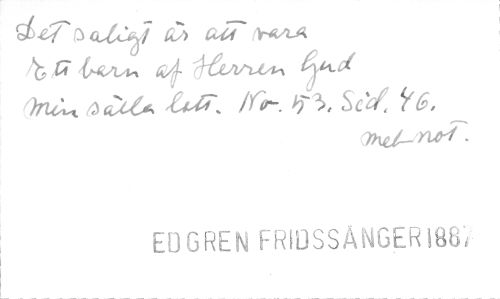 Det saligt är att vara
Ett barn af Herren Gud
Min sälla lott. No. 53. Sid. 46.
med not.
EDGREN FRIDSSÅNGER 1887